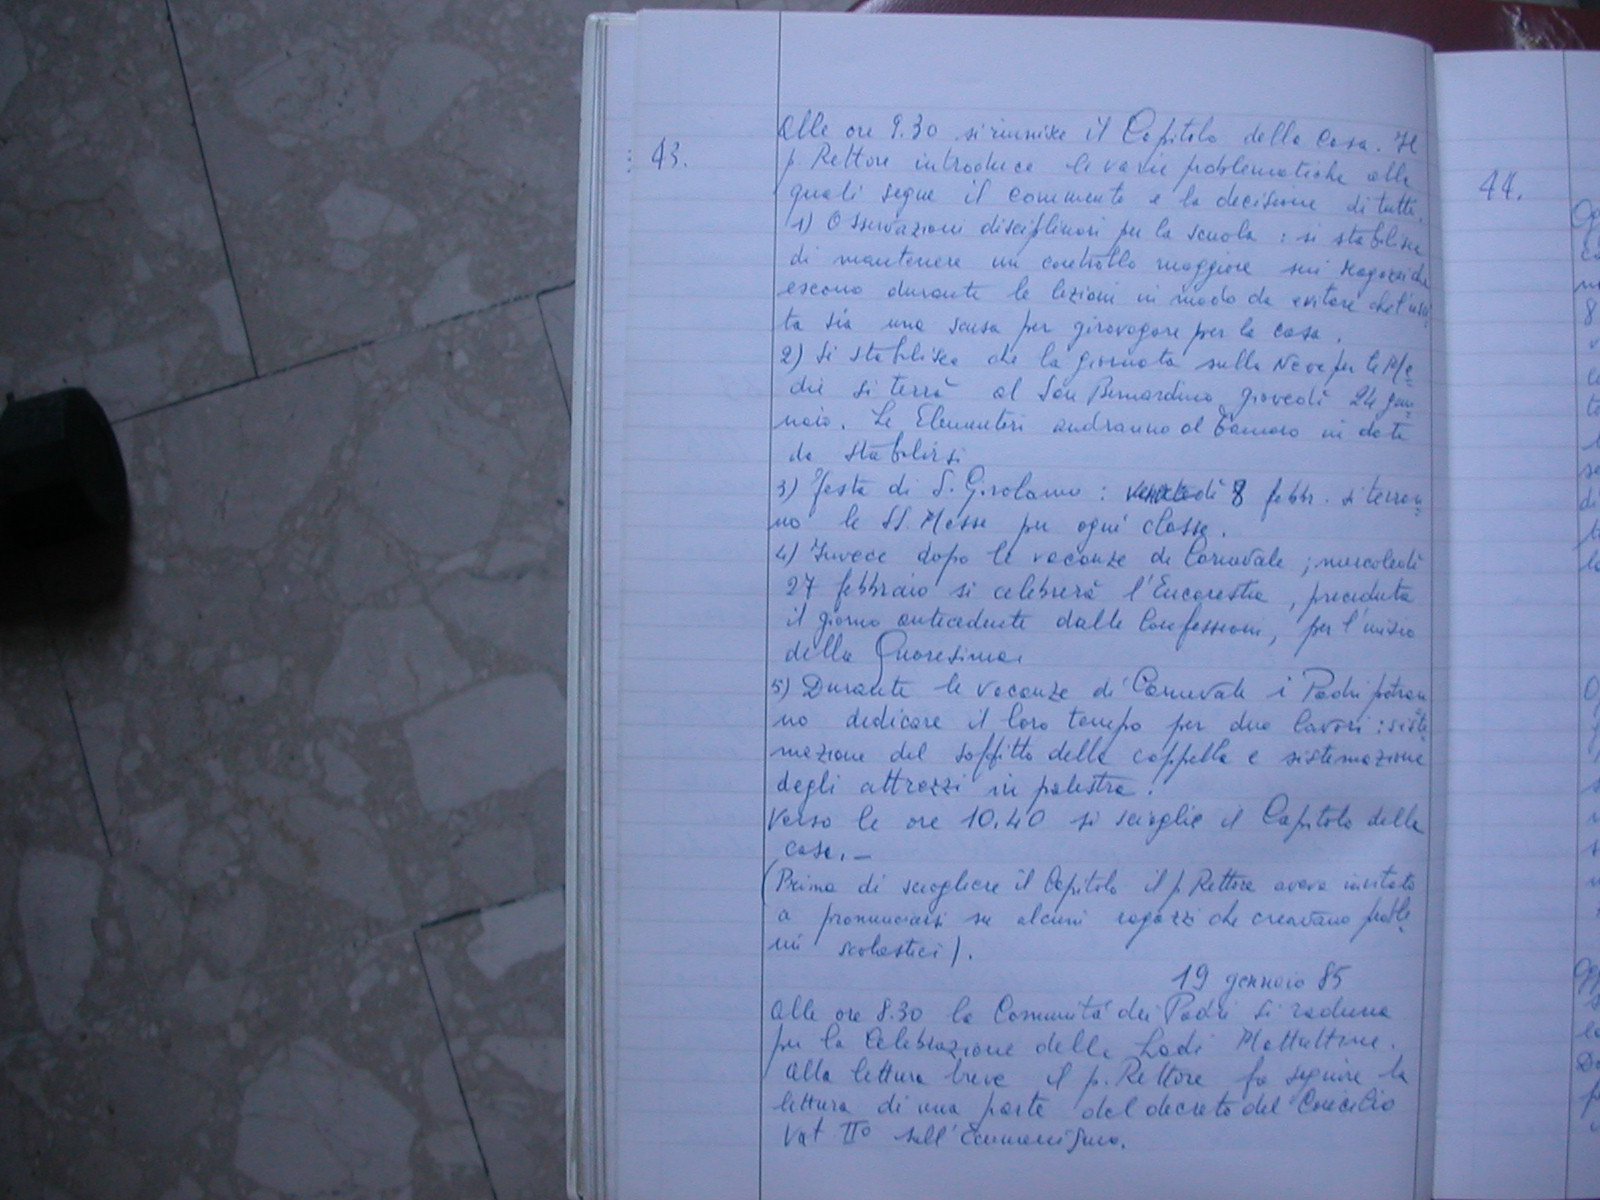 43.
Alle ore 9.30 si riunisce il Capitolo della Casa. Il
p. Rettore introduce le varie problematiche alle
quali segue il commento e la decisione di tutti.
1) Osservazioni disciplinari per la scuola : si stabilisce
di mantenere un controllo maggiore sui ragazzi che
escono durante le lezioni in modo da evitare che l'usci
ta sia una scusa per girovagare per la casa.
2) Si stabilisce che la giornata sulla Neve per le Me=
die si terrà al San Bernardino giovedì 24 gen=
naio. Le Elementari andranno al in data
da stabilirsi
3) Festa di S. Girolamo : venerdì 8 febbr. si terran=
no le SS. Messe per ogni classe.
4) Invece dopo le vacanze di Carnevale ; mercoledì
27 febbraio si celebrerà l'Eucarestia, preceduta
il giorno antecedente dalle Confessioni, per l'inizio
della Quaresima.
5) Durante le vacanze di Carnevale i Padri potran=
no dedicare il loro tempo per due lavori : siste=
mazione del soffitto della cappella e sistemazione
degli attrezzi in palestra.
Verso le ore 10.40 si scioglie il Capitolo della
casa. –
(Prima di sciogliere il Capitolo il p. Rettore aveva invitato
a pronunciarsi su alcuni ragazzi che creavano proble=
mi scolastici).
19 gennaio 85
Alle ore 8.30 la Comunità dei Padri si raduna
per la Celebrazione delle Lodi Mattuttine.
Alla lettura breve il p. Rettore fa seguire la
lettura di una parte del decreto del Concilio
Vat IIº sull'Ecumenismo.
44.